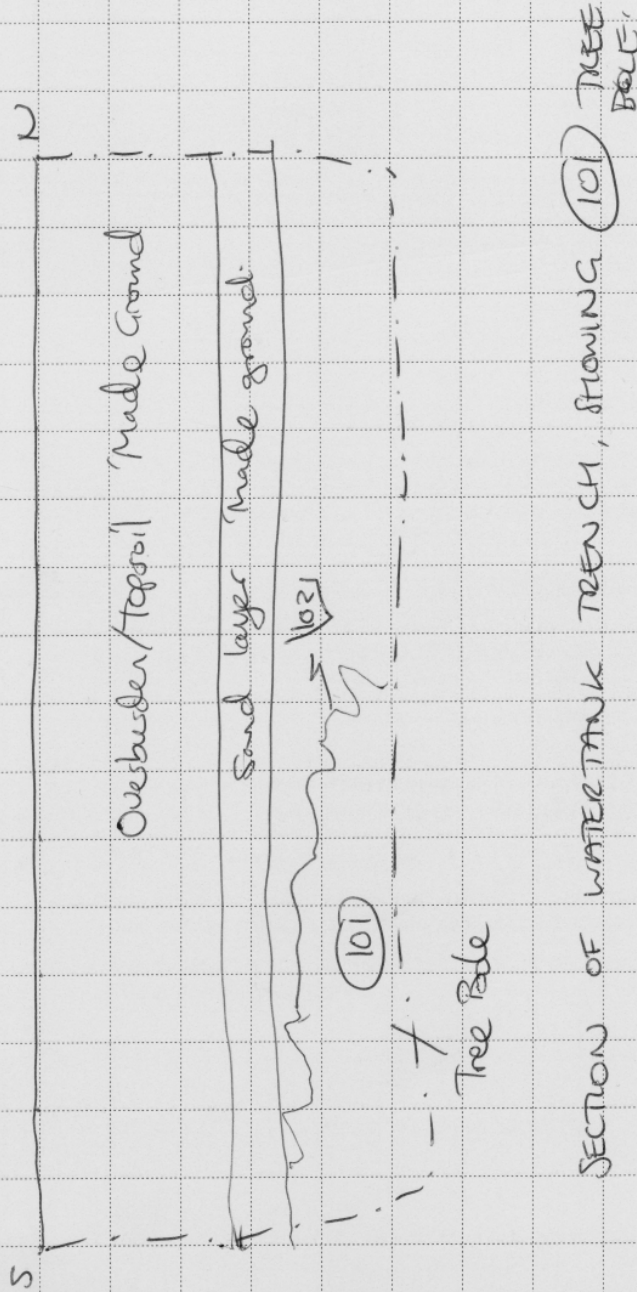 S N
Overburden/Topsoil Made Ground
Sand layer Made ground.
1021
101
Tree Bole
SECTION OF WATERTANK TRENCH, SHOWING 101 TREE
BOLE.